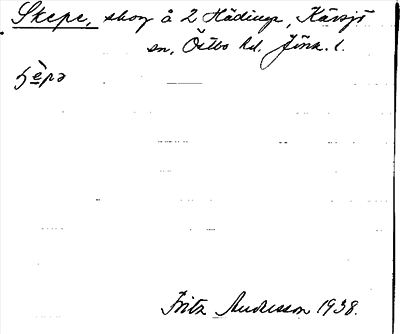 Skepe, skog å 2 Hädinge, Kävsjö
sn, Östbo hd. Jönk. l.
ʃè̱pə
Fritz Andersson 1938.